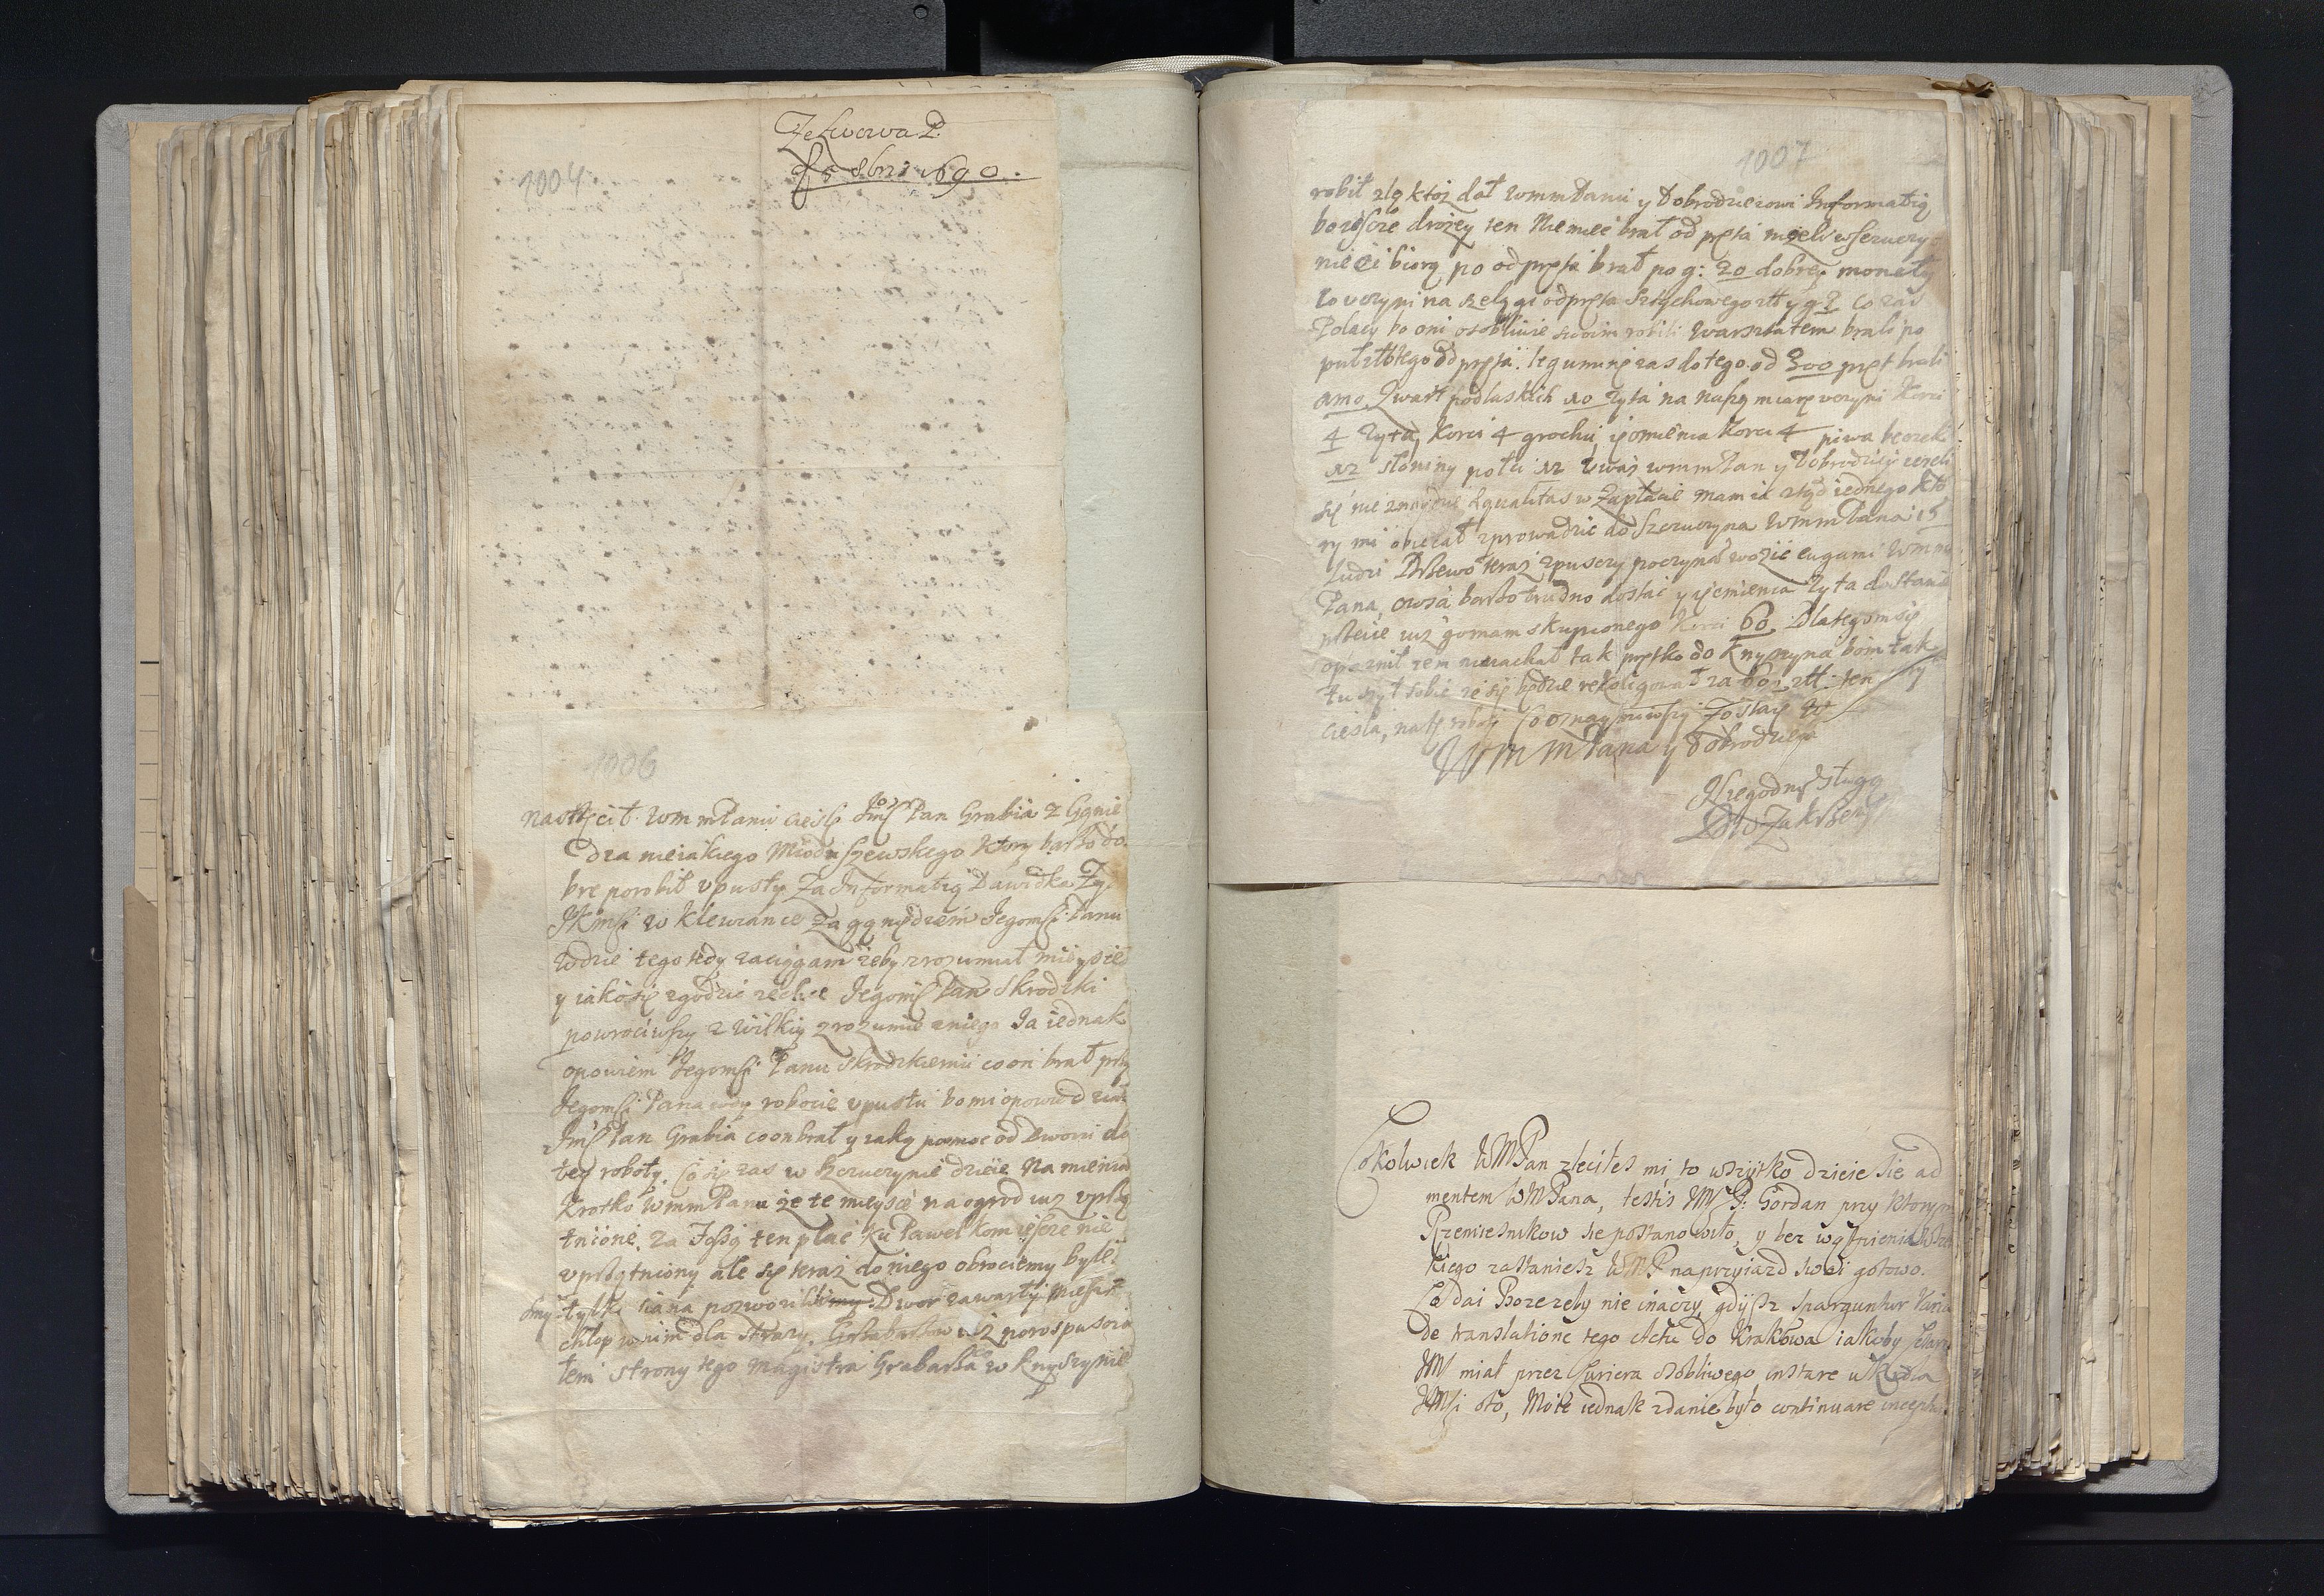 Ze Lwowa D.
5 8bris 1690.
1004
1006
WmmPanu cieśli Jmść Pan Grabia z Gąnie
dza nieiakiego Miodu szewskego ktory barzo do
bre porobił vpusty Za Informatią Dawidka Ży
w Klewiance Za gąniędzem Jegomści Panu
tego tedy zaciągam żeby zrozumiał
y iako się zgodzić zechce Jegomść Pan Skrodzki
powrociwszy z Wilkiy zrozumie zniego Ja iednak
opowiem Jegomści Panu Skrodzkiemu co on brał przy
Jegomści Pana robocie vpustu bo mi opowiedział
Jmść Pan Grabia co on brał y iaką pomoc od Dworu do
tey roboty. Co się zas w Szczuczynie dzieie Na mienia
Krotko WmmPanu że te mieysce na ogrod iuz vprzą
tnione. Za ten plac ku Pawełkom ieszcze nie
vprzątniony ale się teraz do niego obrociemy byle
smy tylko siana pozwozili Dwor zawarty
chłop w nim dla strazy. iuz porospuszcza
łem strony tego Magistra Grabarza w Knyszynie
1007
robił zlą ktoz dał WmmPanu y Dobrodzieiowi Informatią
bo ieszcze drożey ten Niemiec brał od pręta nizeli w Szczuczy
nie ci biorą po od pręta brał po g: 20 dobrey monety
to vczyni na szelągi od pręta Sztychowego zł y g 2 co zas
Polacy bo oni osobliwie swoim robili Warsztatem brali po
puł złłtego od pręta. legumine zas do tego od 300 pręt brali
cwart podlaskich 10 żyta na naszą miarę vczyni Korci
4 Zyta, Korci 4 grochu, ięcmienia Korci 4 piwa beczek
12 słoniny połci 12 Vwaz WmmPan y Dobrodziey iezeli
się nie znaydzie Equalitas w Zapłacie mam ia ztąd iednego kto
ry mi obiecał zprowadzić do Szczuczyna WmmPana 15
ludzi Drzewo teraz zpuszczy poczynał wozić cugami Wmm
Pana, owsa barzo trudno dostać y ięcmienia Zyta dostanie
iuz go mam skupionego Korci 60. Dlategom się
opoznił zem niezachał tak prętko do Knyszyna bom tak
tuszył sobie że się będzie rekoligował za 60 złł: ten
cieśla, na tę robotę Co oznaymiwszy Zostaię
WMMPana y Dobrodzieia
Niegodnę Sługą
Cokolwiek WMPan zleciłes mi, to wszytko dzieie sie ad
mentem WMPana, testis JMść P: Gordan przy ktorym
Rzemiesnikow sie postanowiło, y bez wątpienia
kiego zastaniesz WMP na przyiazd swoi gotowo.
Co dai Boze zeby nie inaczy, gdyz sparguntur
De translatione tego Actu do Krakowa iakoby
JM miał przez Curiera osobliwego instare u Króla
JMści oto, Moie iednak zdanie było continuare